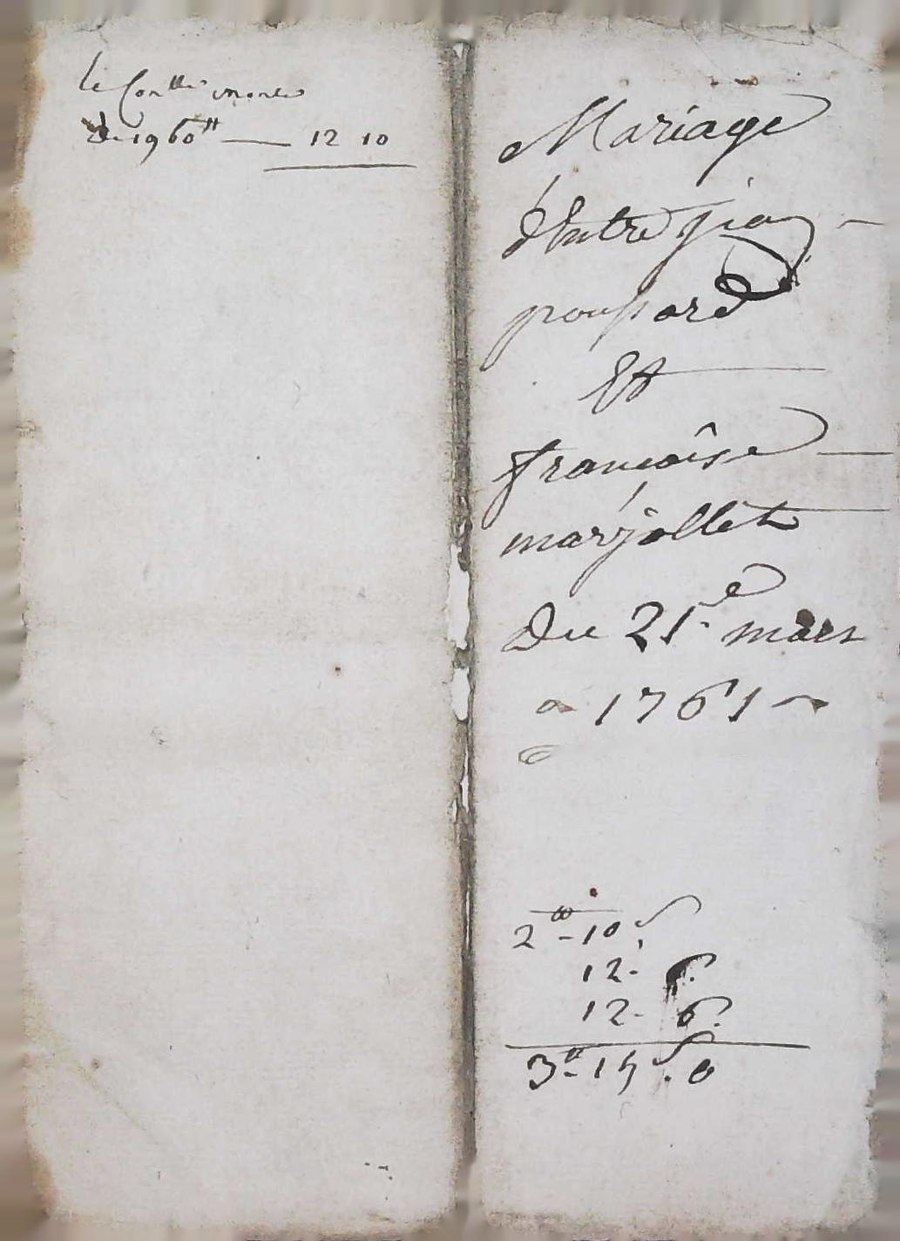 le Con^lle
de 1960^tt — 12 10
Mariage
d'Entre
poussard
Et
francoise
marjollet
Du 21^e mars
1761
2^tt - 10 s
12 - 6
12 - 6
3^tt - 15 s . 0